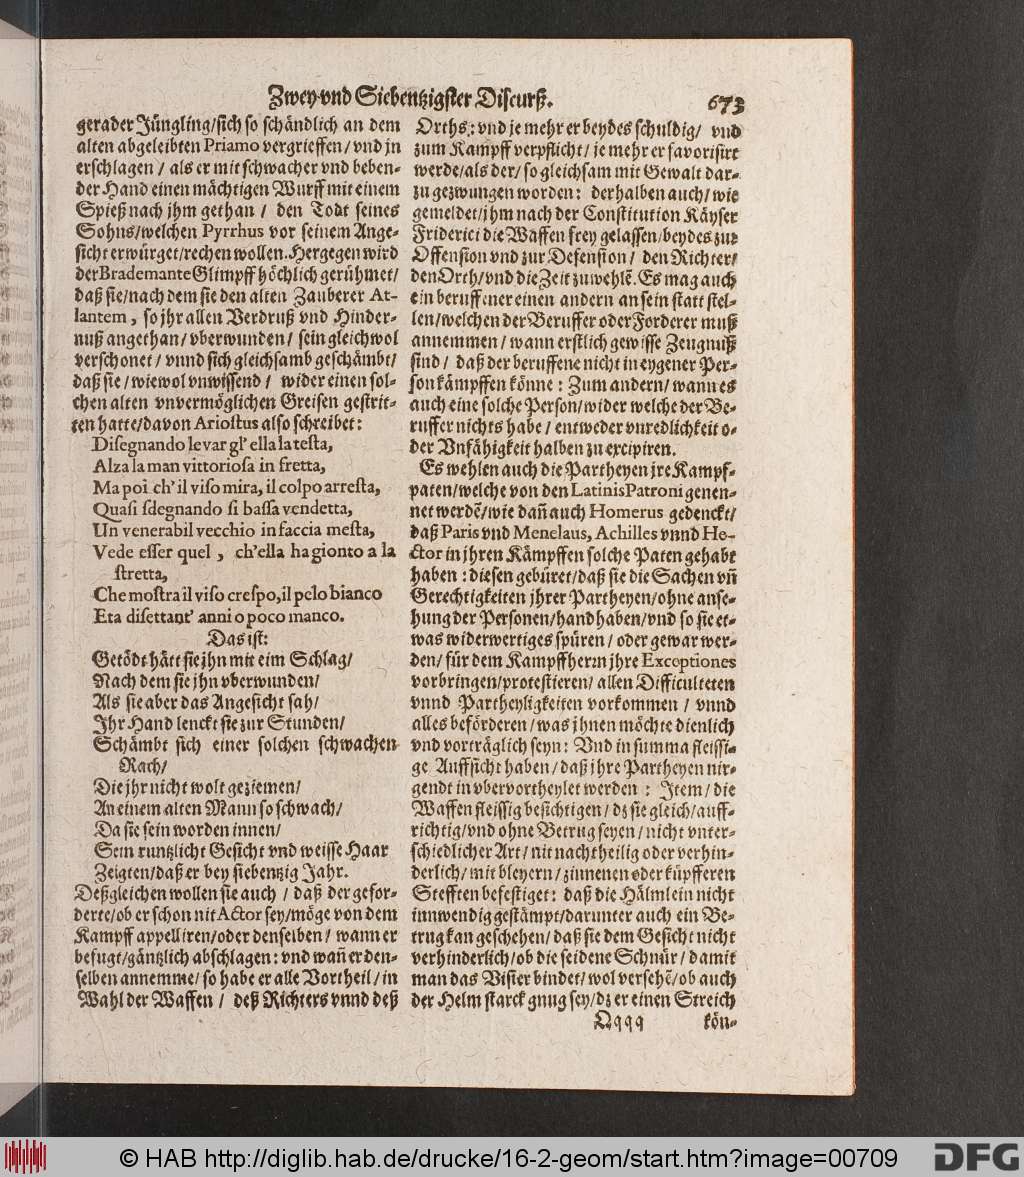 Zwey vnd Siebentzigster Discurß.
673
gerader Jüngling/sich so schändlich an dem
alten abgeleibten Priamo vergrieffen/vnd jn
erschlagen/als er mit schwacher vnd beben-
der Hand einen mächtigen Wurff mit einem
Spieß nach jhm gethan/den Todt seines
Sohns/welchen Pyrrhus vor seinem Ange-
sicht erwürget/rechen wollen. Hergegen wird
der Brademante Glimpff höchlich gerühmet/
daß sie/nach dem sie den alten Zauberer At-
lantem, so jhr allen Verdruß vnd Hinder-
nuß angethan/vberwunden/sein gleichwol
verschonet/vnnd sich gleichsamb geschämbt/
daß sie/wiewol vnwissend/wider einen sol-
chen alten vnvermöglichen Greisen gestrit-
ten hatte/davon Ariostus also schreibet:
Disegnando levar gl' ella la testa,
Alza la man vittoriosa in fretta,
Ma poi ch' il viso mira, il colpo arresta,
Quasi sdegnando si bassa vendetta,
Un venerabil vecchio in faccia mesta,
Vede esser quel, ch'ella ha gionto a la
stretta,
Che mostra il viso crespo, il pelo bianco
Eta disettant' anni o poco manco.
Das ist:
Getödt hätt sie jhn mit eim Schlag/
Nach dem sie jhn vberwunden/
Als sie aber das Angesicht sah/
Jhr Hand lenckt sie zur Stunden/
Schämbt sich einer solchen schwachen
Rach/
Die jhr nicht wolt geziemen/
An einem alten Mann so schwach/
Da sie sein worden innen/
Sein runtzlicht Gesicht vnd weisse Haar
Zeigten/daß er bey siebentzig Jahr.
Deßgleichen wollen sie auch/daß der gefor-
derte/ob er schon nit Actor sey/möge von dem
Kampff appelliren/oder denselben/wann er
befugt/gäntzlich abschlagen: vnd wañ er den-
selben annemme/so habe er alle Vortheil/in
Wahl der Waffen/deß Richters vnnd deß
Orths: vnd je mehr er beydes schuldig/vnd
zum Kampff verpflicht/je mehr er favorisirt
werde/als der/so gleichsam mit Gewalt dar-
zu gezwungen worden: derhalben auch/wie
gemeldet/jhm nach der Constitution Käyser
Friderici die Waffen frey gelassen/beydes zur
Offension vnd zur Defension/den Richter/
den Orth/vnd die Zeit zu wehlē. Es mag auch
ein beruffener einen andern an sein statt stel-
len/welchen der Beruffer oder Forderer muß
annemmen/wann erstlich gewisse Zeugnuß
sind/daß der beruffene nicht in eygener Per-
son kämpffen könne: Zum andern/wann es
auch eine solche Person/wider welche der Be-
ruffer nichts habe/entweder vnredlichkeit o-
der Vnfähigkeit halben zu excipiren.
Es wehlen auch die Partheyen jre Kampf-
paten/welche von den Latinis Patroni genen-
net werdē/wie dañ auch Homerus gedenckt/
daß Paris vnd Menelaus, Achilles vnnd He-
ctor in jhren Kämpffen solche Paten gehabt
haben: diesen gebüret/daß sie die Sachen vñ
Gerechtigkeiten jhrer Partheyen/ohne anse-
hung der Personen/handhaben/vnd so sie et-
was widerwertiges spüren/oder gewar wer-
den/für dem Kampffherrn jhre Exceptiones
vorbringen/protestieren/allen Difficulteten
vnnd Partheyligkeiten vorkommen/vnnd
alles beförderen/was jhnen möchte dienlich
vnd vorträglich seyn: Vnd in summa fleissi-
ge Auffsicht haben/daß jhre Partheyen nir-
gendt in vbervortheylet werden: Item/die
Waffen fleissig besichtigen/dz sie gleich/auff-
richtig/vnd ohne Betrug seyen/nicht vnter-
schiedlicher Art/nit nachtheilig oder verhin-
derlich/mit bleyern/zinnenen oder küpfferen
Stefften befestiget: daß die Hälmlein nicht
innwendig gestämpt/darunter auch ein Be-
trug kan geschehen/daß sie dem Gesicht nicht
verhinderlich/ob die seidene Schnür/damit
man das Visier bindet/wol versehē/ob auch
der Helm starck gnug sey/dz er einen Streich
Qqqq
kön-
© HAB http://diglib.hab.de/drucke/16-2-geom/start.htm?image=00709
DFG